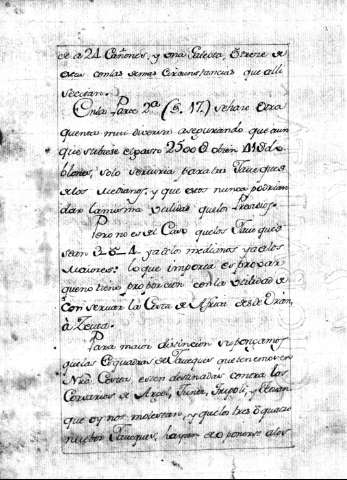 de a 24 Cañones, y una Galeota, ó trece de
estas con las demas Circunstancias que alli
se citan.
En la Parte 2ª (§. 17.) se hace otra
quenta mui diversa asegurando que aun
que subiese el gasto 2500
blones, solo serviria para las Jaueques
de los medianos, y que estos nunca podrian
dar la misma utilidad que los Presidios.
Pero no es el Caso que los Jaueques
sean 2-3-4 ya de los medianos ya de los
Maiores: lo que importa es probar
que no tiene proporcion con la utilidad de
conservar la Costa de Africa desde Oran,
à Zeuta.
Para maior distincion supongamos
que las Esquadras de Jaueques que tenemos en
Nrã. Costa esten destinadas contra los
Corsarios de Argel, Tunez, Tripoli, y
que oy nos molestan, y que los tres ò quatro
nuebos Jaueques, hayan de oponerse a los